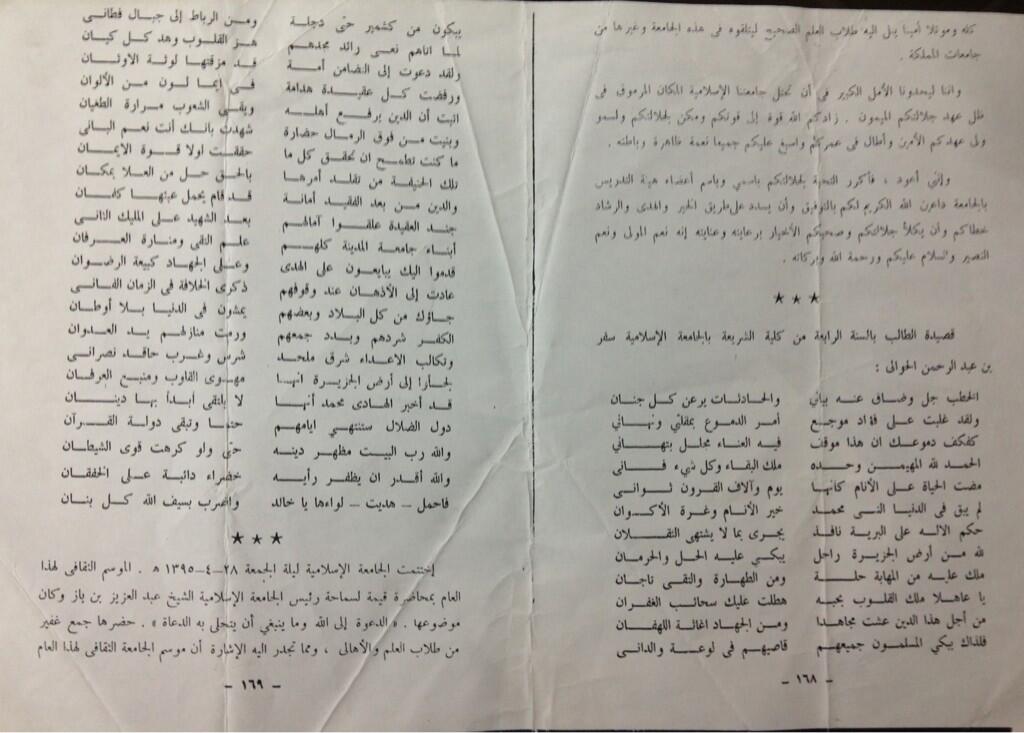 كله وموئلا أمينا يفد اليه طلاب العلم الصحيح ليتلقوه في هذه الجامعة وغيرها من
جامعات المملكة .
واننا ليحدونا الأمل الكبير فى أن تحتل جامعتنا الإسلامية المكان المرموق فى
ظل عهد جلالتكم الميمون . زادكم الله قوة إلى قوتكم ومكن لجلالتكم ولسمو
ولى عهدكم الأمين وأطال فى عمركم وأسبغ عليكم جميعا نعمة ظاهرة وباطنة .
وإننى أعود ، فأكرر التحية لجلالتكم باسمي وباسم أعضاء هيئة التدريس
بالجامعة داعين الله الكريم لكم بالتوفيق وأن يسدد على طريق الخير والهدى والرشاد
خطاكم وأن يكلأ جلالتكم وصحبكم الأخيار برعايته وعنايته إنه نعم المولى ونعم
النصير والسلام عليكم ورحمة الله وبركاته .
★ ★ ★
قصيدة الطالب بالسنة الرابعة من كلية الشريعة بالجامعة الإسلامية سفر
بن عبد الرحمن الحوالى :
الخطب جل وضاق عنه بيانى والحادثات يرعن كل جنان
ولقد غلبت على فؤاد موجع أمر الدموع بمقلتي ونهاني
كفكف دموعك ان هذا موقف فيه العناء مجلل بتهانى
الحمد لله المهيمن وحده ملك البقاء وكل شيء فانى
مضت الحياة على الأنام كأنها يوم وآلاف القرون ثوانى
لم يبق فى الدنيا النبى محمد خير الأنام وغرة الأكوان
حكم الاله على البرية نافذ يجرى بما لا يشتهى الثقلان
لله من أرض الجزيرة راحل يبكي عليه الحل والحرمان
ملك عليه من المهابة حلة ومن الطهارة والتقى تاجان
يا عاهلا ملك القلوب بحبه هطلت عليك سحائب الغفران
من أجل هذا الدين عشت مجاهدا ومن الجهاد اغاثة اللهفان
فلذاك يبكي المسلمون جميعهم قاصيهم فى لوعة والدانى
– ١٦٨ –
يبكون من كشمير حتى دجلة ومن الرباط إلى جبال فطانى
لما اتاهم نعى رائد مجدهم هز القلوب وهد كل كيان
ولقد دعوت إلى التضامن أمة قد مزقتها لوثة الاوثان
ورفضت كل عقيدة هدامة فى ايما لون من الألوان
اثبت أن الدين يرفع أهله ويقى الشعوب مرارة الطغيان
وبنيت من فوق الرمال حضارة شهدت بانك أنت نعم البانى
ما كنت تطمح ان تحقق كل ما حققت اولا قوة الايمان
تلك الحنيفة من تقلد أمرها بالحق حل من العلا بمكان
والدين من بعد الفقيد أمانة قد قام يحمل عبئها كفان
جند العقيدة علقوا آمالهم بعد الشهيد على المليك الثانى
أبناء جامعة المدينة كلهم علم التقى ومنارة العرفان
قدموا اليك يبايعون على الهدى وعلى الجهاد كبيعة الرضوان
عادت إلى الأذهان عند وقوفهم ذكرى الخلافة فى الزمان الفانى
جاؤك من كل البلاد وبعضهم يمشون فى الدنيا بلا أوطان
الكفر شردهم وبدد جمعهم ورمت منازلهم يد العدوان
وتكالب الاعداء شرق ملحد شرس وغرب حاقد نصرانى
لجأوا إلى أرض الجزيرة انها مهوى القاوب ومنبع العرفان
قد أخبر الهادى محمد أنها لا يلتقى أبدأ بها دينان
دول الضلال ستنتهي ايامهم حتما وتبقى دولة القرآن
والله رب البيت مظهر دينه حتى ولو كرهت قوى الشيطان
والله أقدر ان يظفر رأيه خضراء دائبة على الخفقان
فاحمل – هديت – لواءها يا خالد واضرب بسيف الله كل بنان
★ ★ ★
إختتمت الجامعة الإسلامية ليلة الجمعة ٢٨–٤–١٣٩٥ ه . الموسم الثقافى لهذا
العام بمحاضرة قيمة لسماحة رئيس الجامعة الإسلامية الشيخ عبد العزيز بن باز وكان
موضوعها . « الدعوة إلى الله وما ينبغي أن يتحلى به الدعاة » . حضرها جمع غفير
من طلاب العلم والأهالى ، ومما تجدر اليه الإشارة أن موسم الجامعة الثقافى لهذا العام
– ١٦٩ –